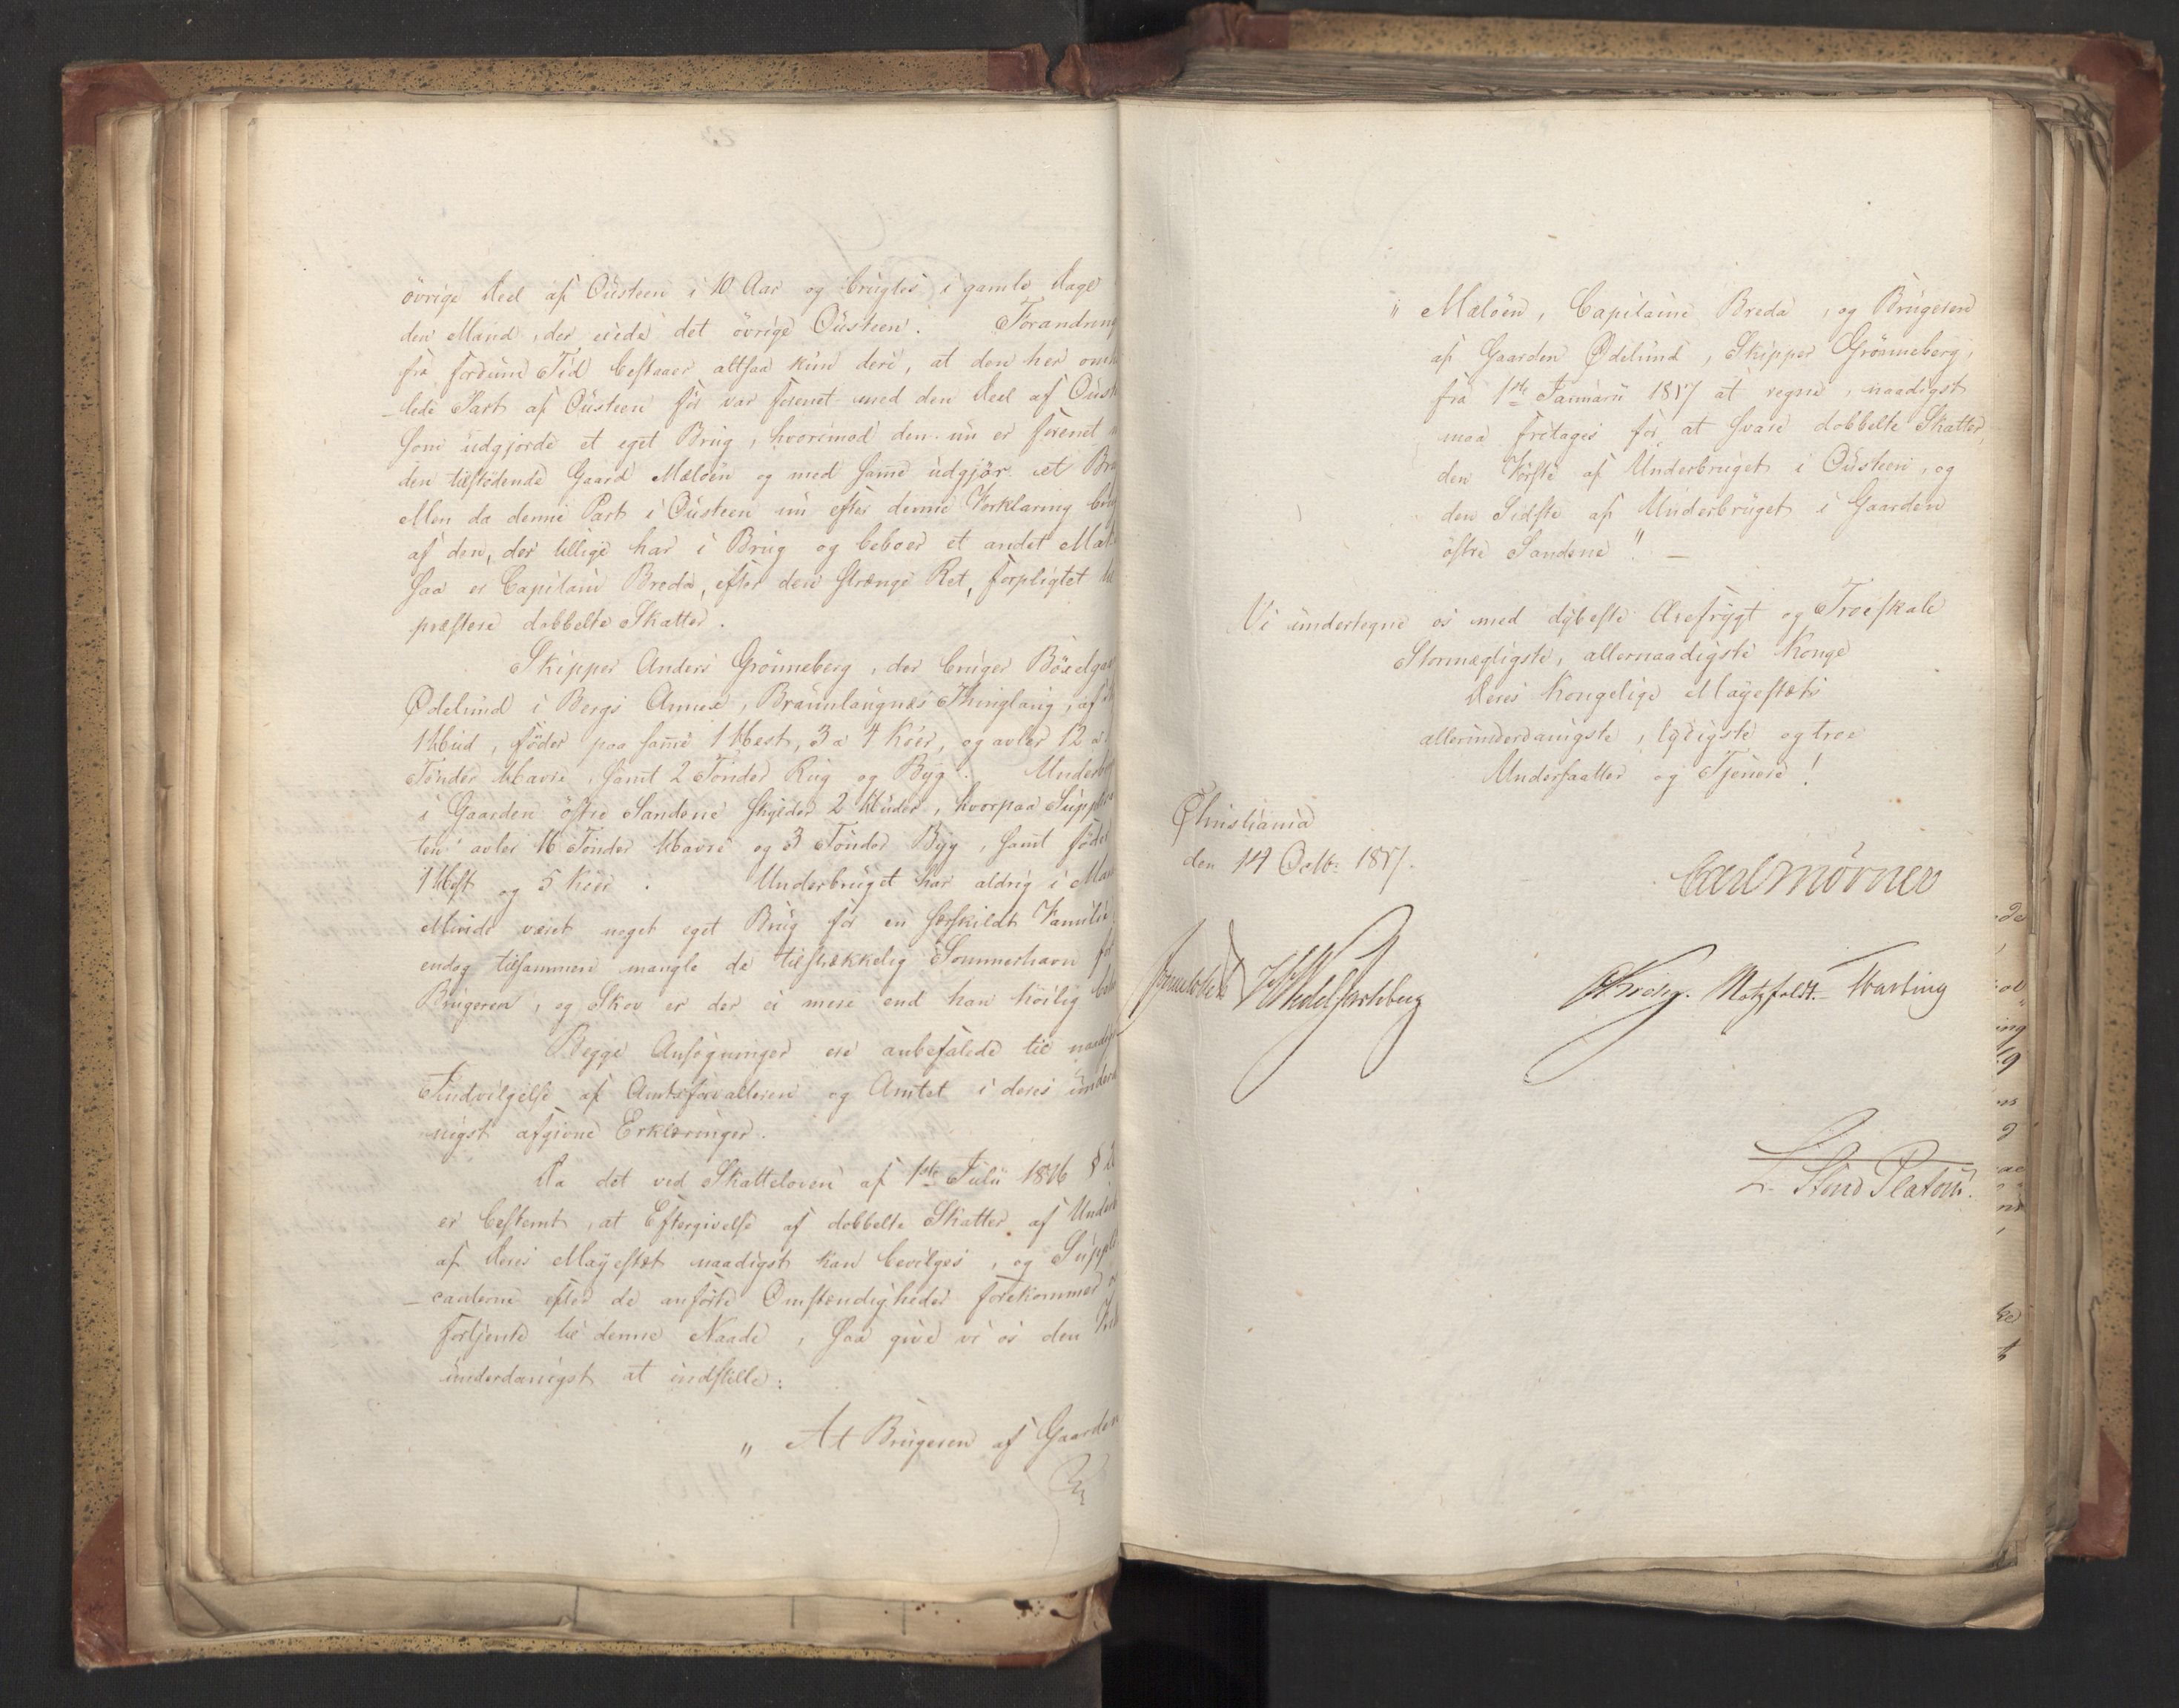 övrige Deel af Ousteen i 10 Aar og brugtes i gamle Dage
den Mand, der eiede det övrige Ousteen. Forandring
fra fordum Tid bestaaer altsaa kun deri, at den her om
-lede Part af Ousteen för var forenet med den Deel af Oust
som udgjorde et eget Brug, hvorimod den nu er forenet
den tilstödende Gaard Mælöen og med samme udgjör et Br
Men da denne Part i Ousteen nu efter denne Forklaring
af den, der tillige har i Brug og beboer et andet Mat
saa er Capitain Breda, efter den strænge Ret, forpligtet
præstere dobbelte Skatter.
Skipper Anders Grönneberg, der bruger Böxelgaar
Ödelund i Bergs Annex, Braunlaugnæs Thinglaug, af
1 Hud, föder paa samme 1 Hest, 3 a 4 Köer, og avler 12 a
Tönder Havre, samt 2 Tönder Rug og Byg. Underbr
i Gaarden östre Sandene skylder 2 Huder, hvorpaa Suppli
ten avler 16 Tönder Havre og 3 Tönder Byg, samt föder
1 Hest og 5 Köer. Underbruget har aldrig i Man
Minde været noget eget Brug for en særskildt Familie
endog tilsammen mangle de tilstrækkelig Sommerhavn for
Brugeren, og Skov er der ei mere end han höilig
Begge Ansögninger ere anbefalede til naadigst
Indvilgelse af Amtsforvalteren og Amtet i deres underd
nigst afgivne Erklæringer.
Da det ved Skatteloven af 1ste Julii 1816 §
er bestemt, at Eftergivelse af dobbelte Skatter af Underb
af Deres Mayestæt naadigst kan bevilges, og Suppli
-canterne efter de anförte Omstændigheder forekommer
fortjente til denne Naade, saa give vi os den
underdanigst at indstille:
„ At Brugeren af Gaarden
„ Mælöen, Capitaine Breda, og Brugeren
af Gaarden Ödelund, Skipper Grönneberg,
fra 1ste Januarii 1817 at regne, naadigst
maa fritages for at svare dobbelte Skatter,
den Förste af Underbruget i Ousteen, og
den Sidste af Underbruget i Gaarden
östre Sandene". —
Vi undertegne os med dybeste Ærefrygt og Troeskab
Stormægtigste, allernaadigste Konge
Deres Kongelige Mayestæts
allerunderdanigste, lydigste og troe
Undersaatter og Tjenere!
Christiania
den 14 Octb: 1817.
Carl Mörner
Sommerhielm HWedel Jarlsberg
CKrohg. Motzfeldt. Thaning
L. Stoud Platou.